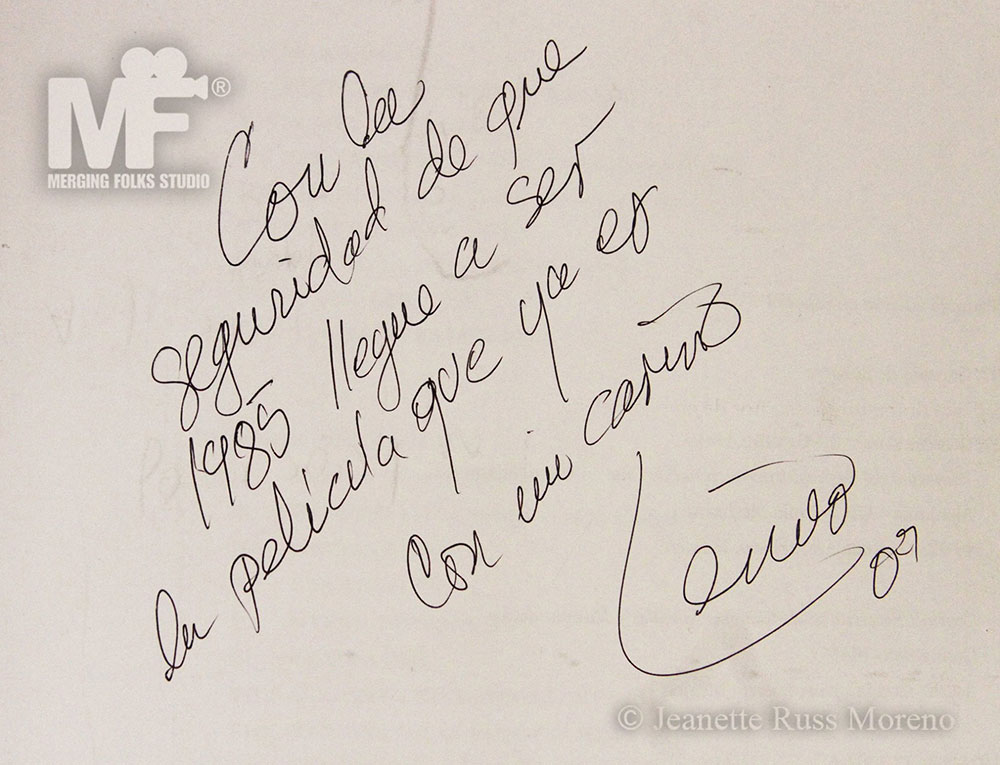 MF®
MERGING FOLKS STUDIO
Con la
seguridad de que
1985 llegue a ser
la película que ya es
Con mi cariño
09
© Jeanette Russ Moreno